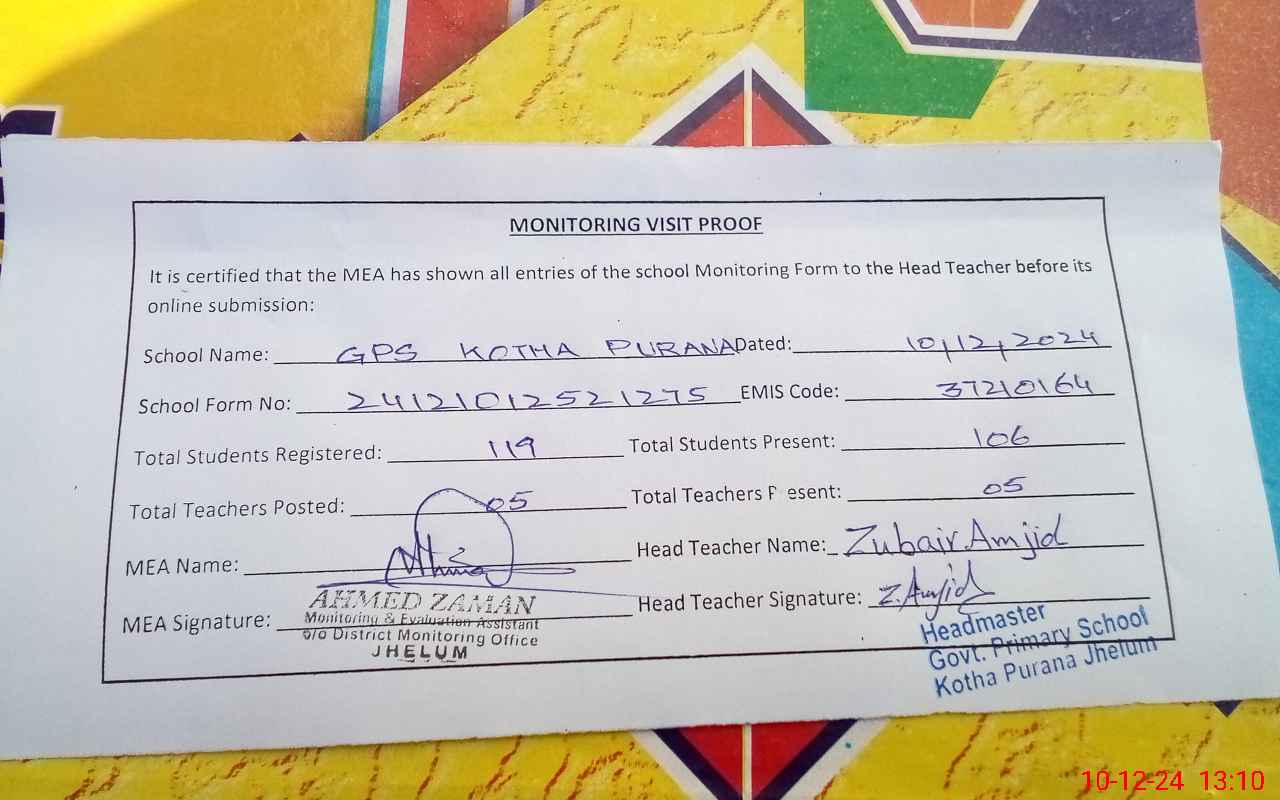 MONITORING VISIT PROOF
It is certified that the MEA has shown all entries of the school Monitoring Form to the Head Teacher before its
online submission:
School Name: GPS KOTHA PURANA Dated: 10,12,2024
School Form No: 24121012521275 EMIS Code: 37210164
Total Students Registered: 119 Total Students Present: 106
Total Teachers Posted: 05 Total Teachers P esent: 05
MEA Name: Head Teacher Name: Zubair Amjid
MEA Signature: Head Teacher Signature: Z.Amjid
AHMED ZAMAN
Monitoring & Evaluation Assistant
O/o District Monitoring Office
JHELUM
Headmaster
Govt. Primary School
Kotha Purana Jhelum
10-12-24 13:10